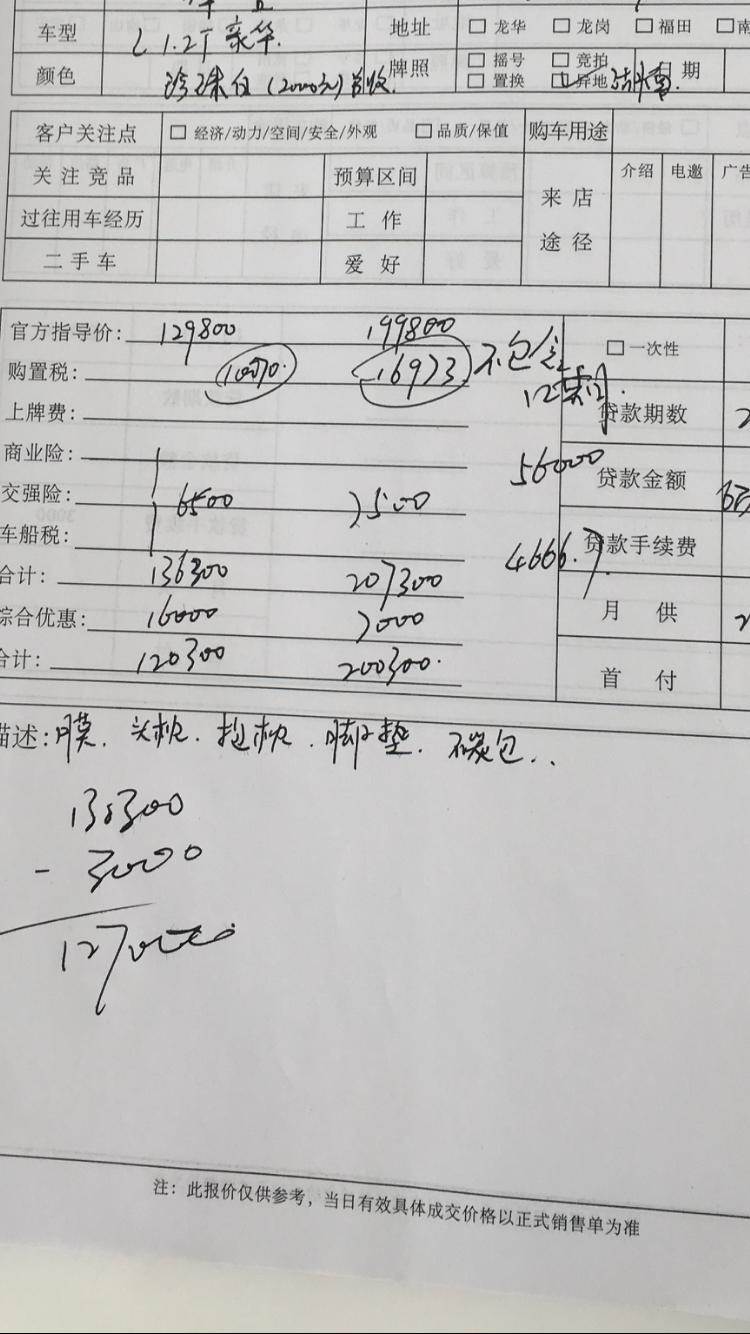 车型 1.2T 豪华 地址 □ 龙华 □ 龙岗 □ 福田 □ 南
颜色 珍珠白（2000元）首收 牌照 □ 摇号 □ 竞拍 期
□ 置换 □ 异地
客户关注点 □ 经济/动力/空间/安全/外观 □ 品质/保值 购车用途
关注竞品 预算区间 来店途径 介绍 电邀 广告
过往用车经历 工作
二手车 爱好
官方指导价: 129800 199800 □ 一次性
购置税: 16973 不包含
上牌费: 贷款期数
商业险: 56000 贷款金额
交强险: 6500 7500
车船税: 4666.7 贷款手续费
合计: 136300 207300 月供
综合优惠: 16000 7000
合计: 120300 200300. 首付
描述: 膜. 头枕. 抱枕. 脚垫.
130300
- 3000
127000
注：此报价仅供参考，当日有效具体成交价格以正式销售单为准